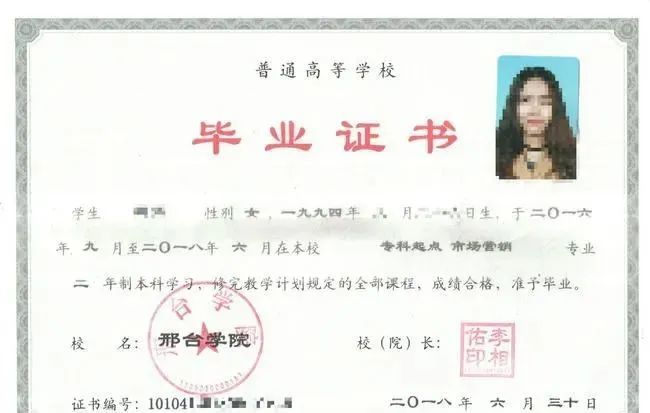 普通高等学校
毕业证书
学生 性别 女，一九九四年 月 日生，于二〇一六
年 九 月至二〇一八年 六 月在本校 专科起点 市场营销 专业
二 年制本科学习，修完教学计划规定的全部课程，成绩合格，准予毕业。
校 名：邢台学院 校（院）长：
李相佑印
邢台学院
证书编号：10104 二〇一八年 六 月 三十日